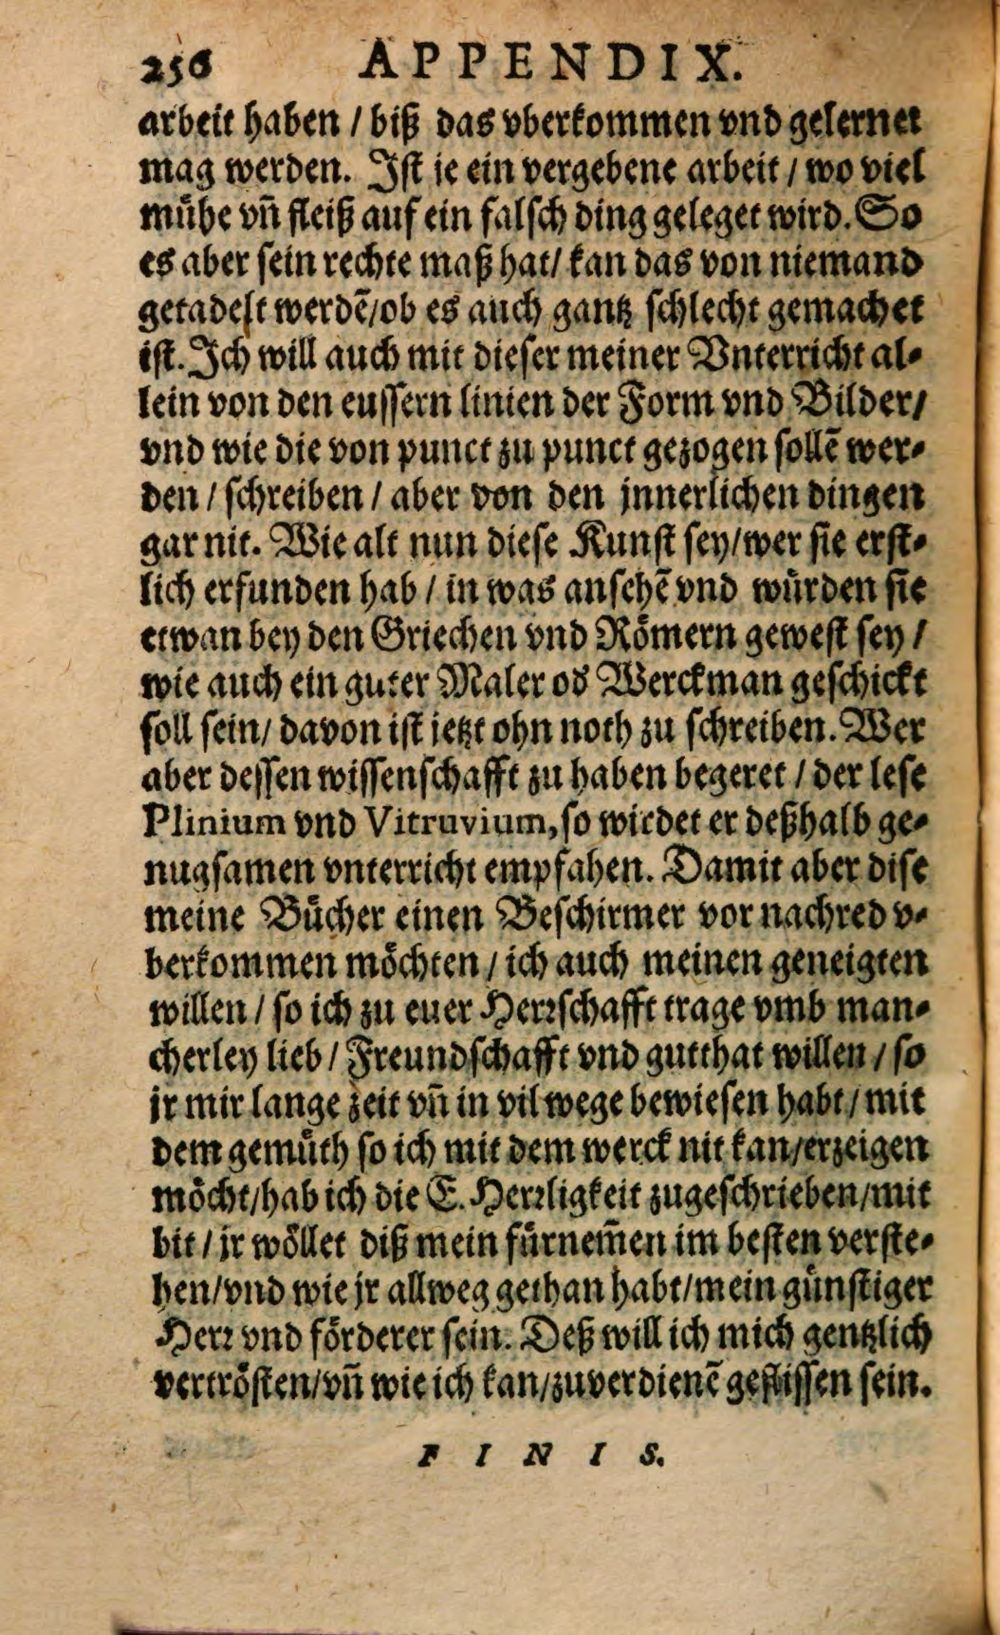 256 APPENDIX.
arbeit haben / biß das vberkommen vnd gelernet
mag werden. Ist je ein vergebene arbeit / wo viel
mühe vñ fleiß auf ein falsch ding geleget wird. So
es aber sein rechte maß hat/ kan das von niemand
getadelt werdẽ/ob es auch gantz schlecht gemachet
ist. Ich will auch mit dieser meiner Vnterricht al-
lein von den eussern linien der Form vnd Bilder/
vnd wie die von punct zu punct gezogen sollẽ wer-
den / schreiben / aber von den jnnerlichen dingen
gar nit. Wie alt nun diese Kunst sey/wer sie erst-
lich erfunden hab / in was ansehẽ vnd würden sie
etwan bey den Griechen vnd Römern gewest sey /
wie auch ein guter Maler od' Werckman geschickt
soll sein/ davon ist jetzt ohn noth zu schreiben. Wer
aber dessen wissenschafft zu haben begeret / der lese
Plinium vnd Vitruvium, so wirdet er deßhalb ge-
nugsamen vnterricht empfahen. Damit aber dise
meine Bücher einen Beschirmer vor nachred v-
berkommen möchten / ich auch meinen geneigten
willen / so ich zu euer Herrschafft trage vmb man-
cherley lieb / Freundschafft vnd gutthat willen / so
jr mir lange zeit vñ in vil wege bewiesen habt / mit
dem gemüth so ich mit dem werck nit kan/erzeigen
möcht/hab ich die E. Herrligkeit zugeschrieben/mit
bit / jr wöllet diß mein fürnem̃en im besten verste-
hen/vnd wie jr allweg gethan habt/mein günstiger
Herr vnd förderer sein. Deß will ich mich gentzlich
vertrösten/vñ wie ich kan/zuverdienẽ geflissen sein.
FINIS.